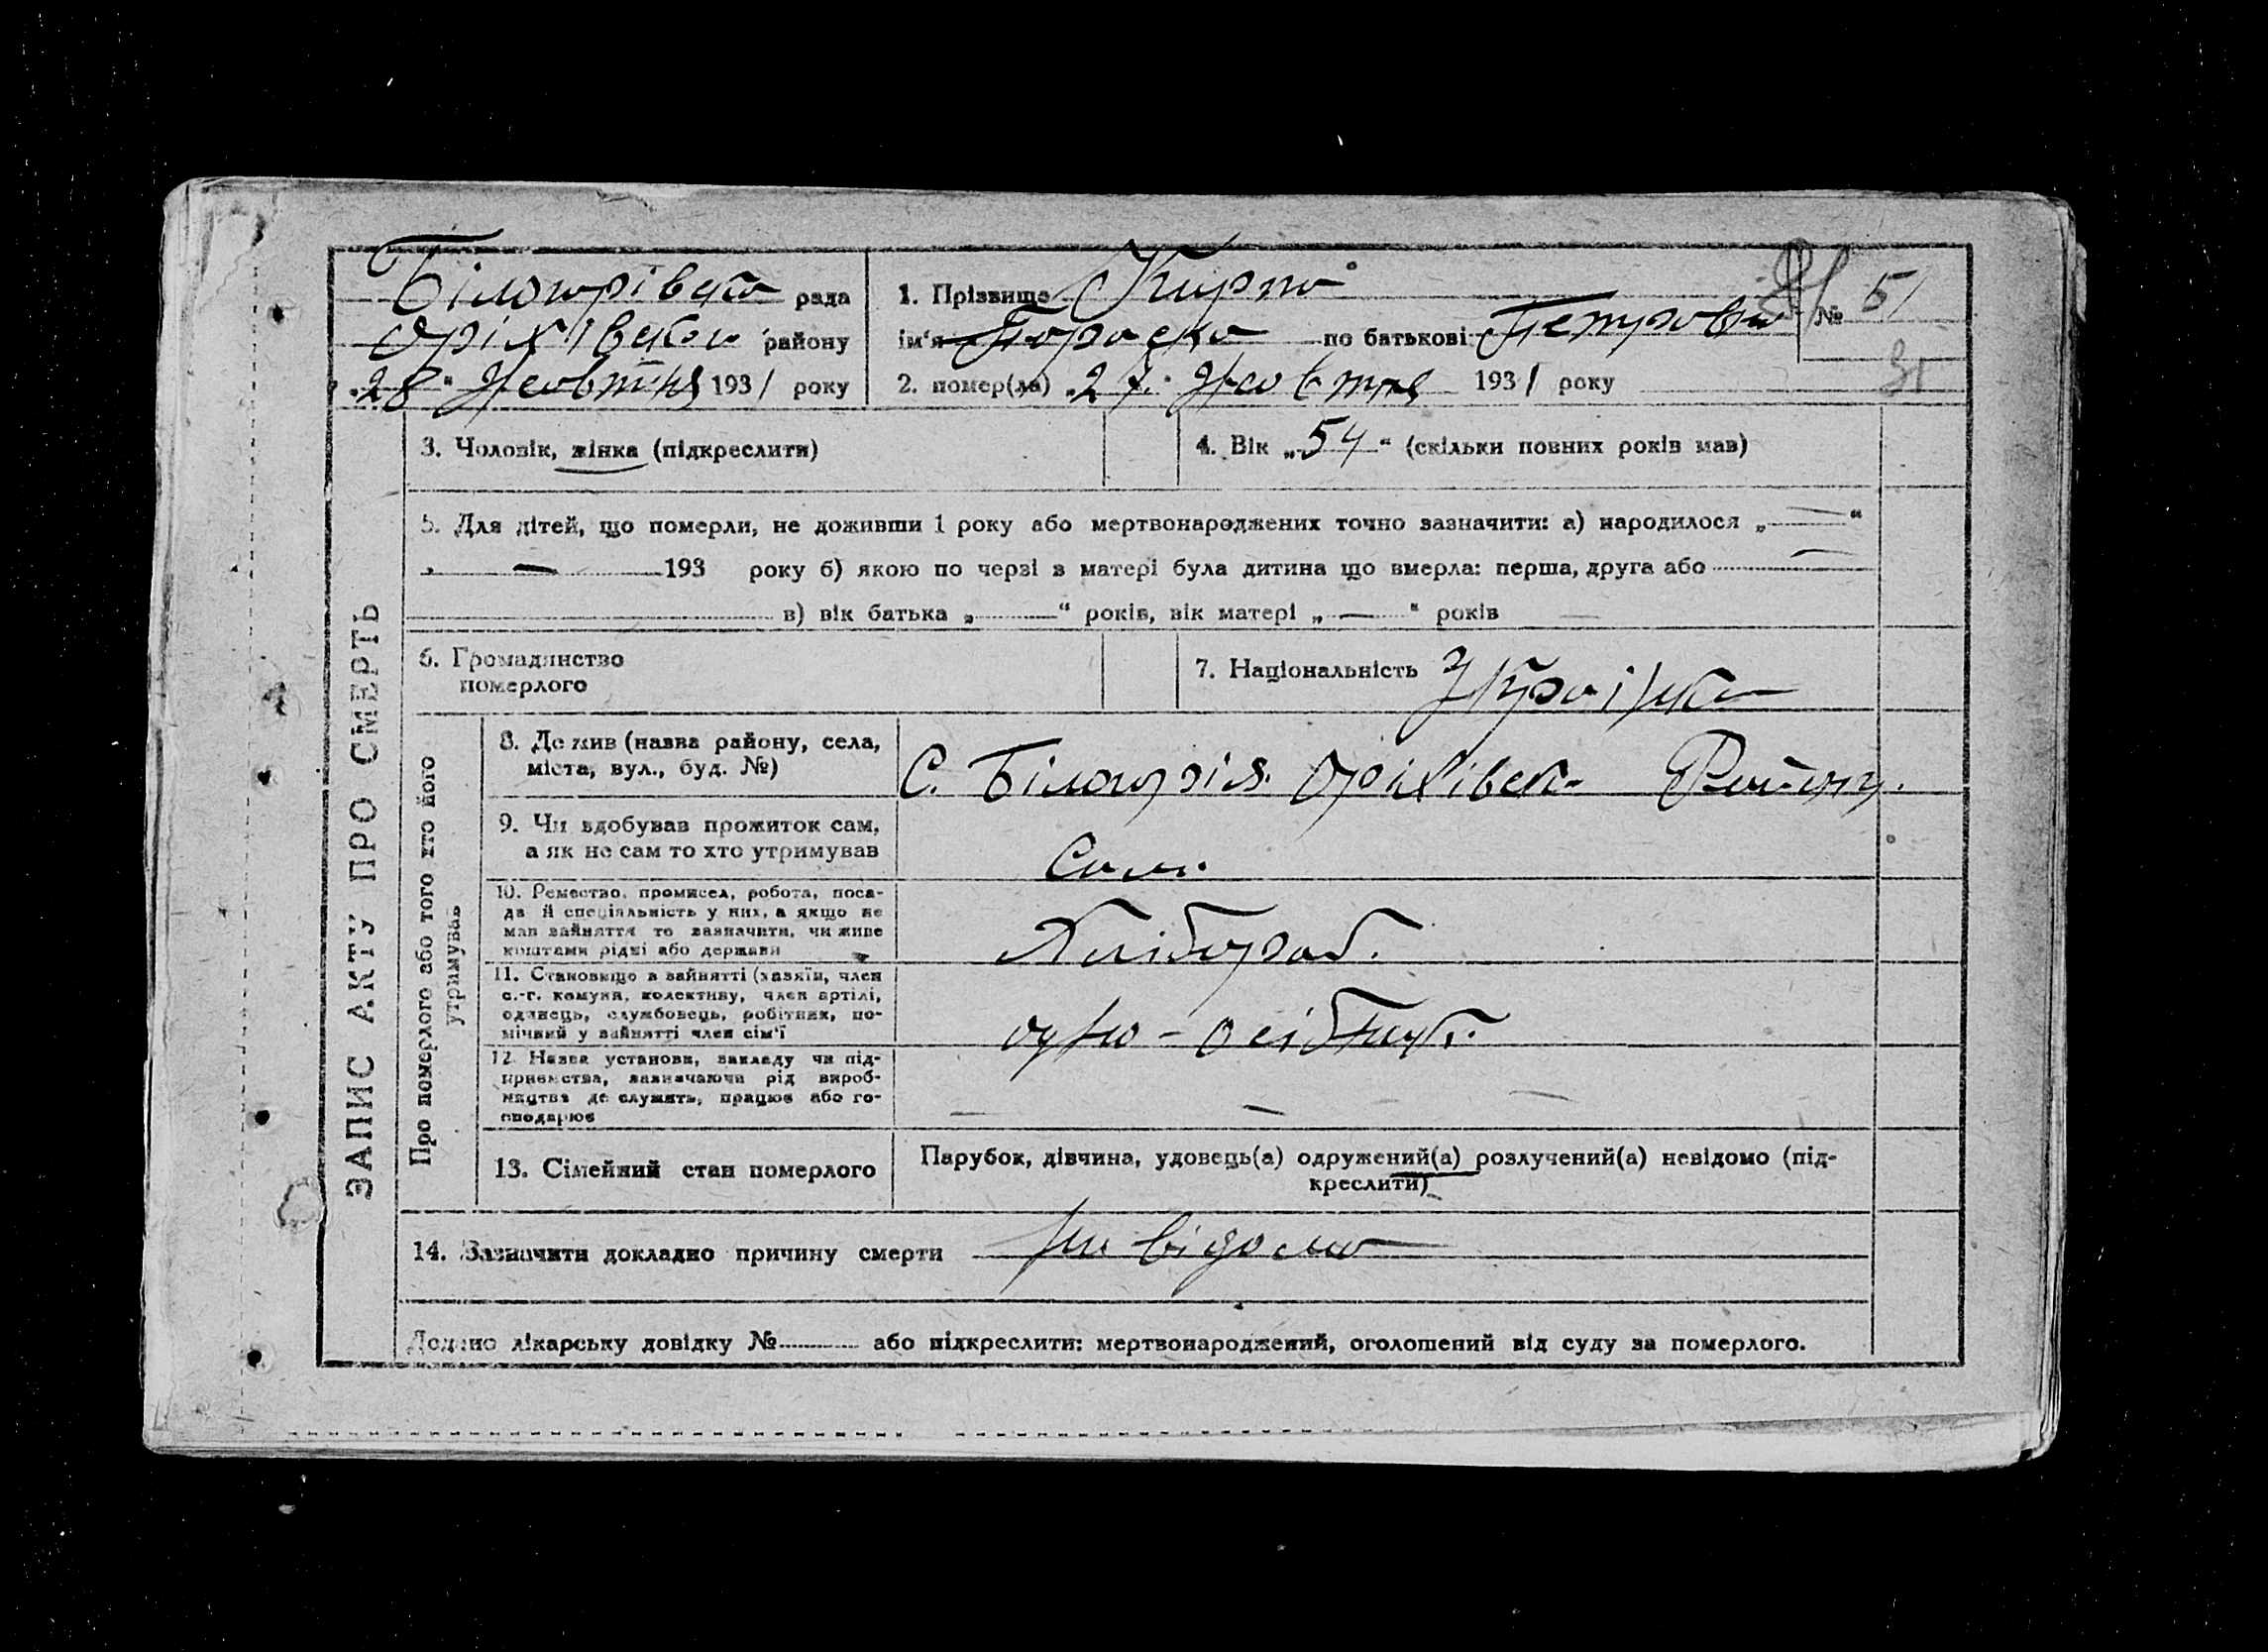 Білогорівська рада
Оріхівськи району
„28“ Жовтня 1931 року
1. Прізвище Кирпа
ім'я Параска по батькові Петровна
№ 51
31
2. помер(ла) „27“ Жовтня 1931 року
ЗАПИС АКТУ ПРО СМЕРТЬ
3. Чоловік, жінка (підкреслити)
4. Вік „54“ (скільки повних років мав)
5. Для дітей, що померли, не доживши 1 року або мертвонароджених точно зазначити: а) народилося „—“
„ — 193 року б) якою по черзі в матері була дитина що вмерла: перша, друга або —
в) вік батька „ “ років, вік матері „—“ років —
6. Громадянство
померлого
7. Національність Україн/ка
Про померлого або того хто його
утримував
8. Де жив (назва району, села,
міста, вул., буд. №)
С. Білогірія. Оріхівськ- Району.
9. Чи здобував прожиток сам,
а як не сам то хто утримував
Сам.
10. Ремество, промисел, робота, поса-
да й спеціяльність у них, а якщо не
мав зайняття то зазначити, чи живе
коштами рідні або держави
Хлібороб.
11. Становище в зайнятті (хазяїн, член
с.-г. комуни, колективу, член артілі,
одинець, службовець, робітник, по-
мічний у зайнятті член сім'ї
одно-осібник.
12. Назва установи, закладу чи під-
приємства, зазначаючи рід вироб-
ництва де служить, працює або го-
сподарює
— — —
13. Сімейний стан померлого
Парубок, дівчина, удовець(а) одружений(а) розлучений(а) невідомо (під-
креслити)
14. Зазначити докладно причину смерти невідомо
Додано лікарську довідку № або підкреслити: мертвонароджений, оголошений від суду за померлого.